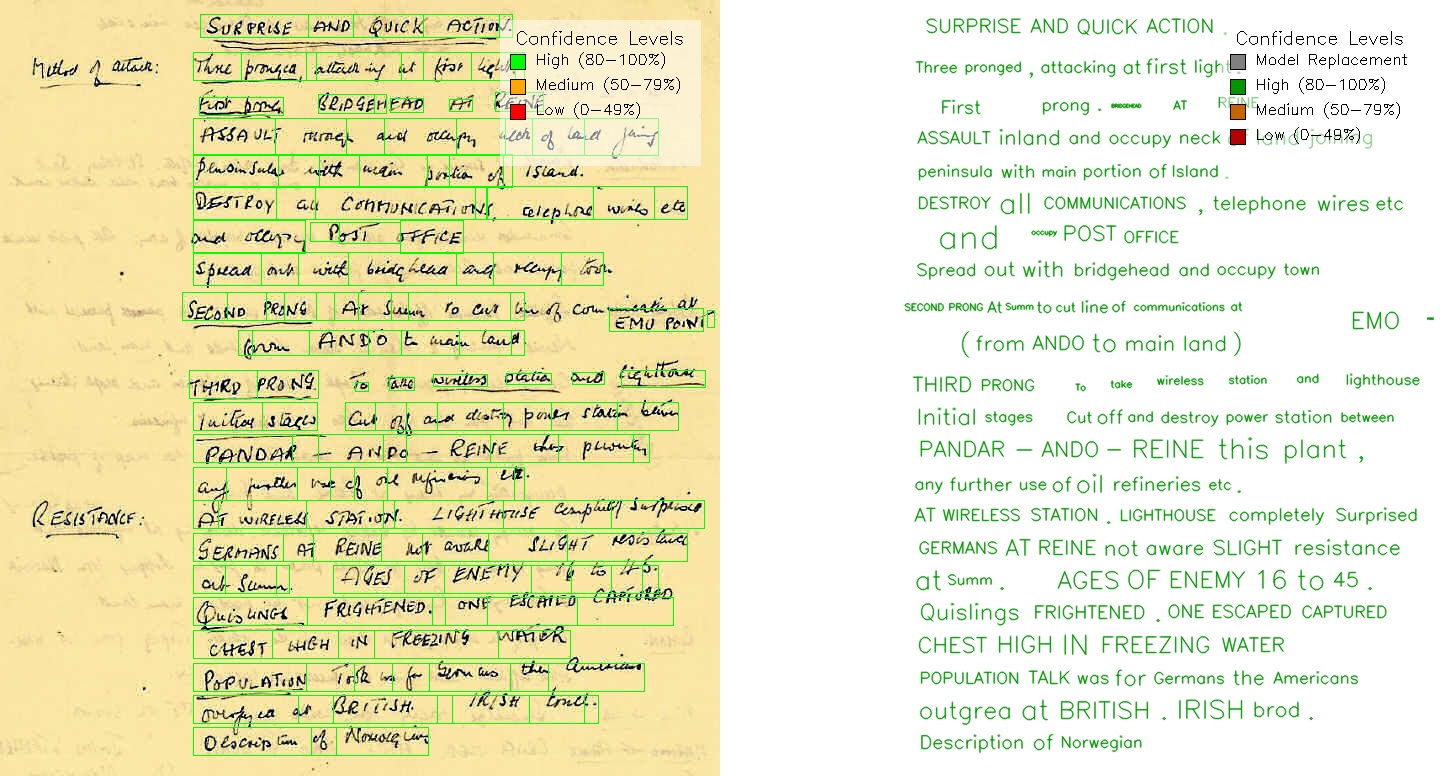 SURPRISE AND QUICK ACTION.
Method of attack: Three pronged, attacking at first light
First prong BRIDGEHEAD AT REINE
ASSAULT through and occupy neck of land joining
peninsular with main portion of Island.
DESTROY all COMMUNICATIONS, telephone wires etc
and occupy POST OFFICE
Spread out with bridgehead and occupy town
SECOND PRONG At Sumn to cut line of communication at
EMU POINT
from ANDO to main land.
THIRD PRONG. To take wireless station and lighthouse
Initial stages Cut off and destroy power station between
PANDAR — ANDO — REINE thus preventing
any further use of oil refineries etc.
RESISTANCE: AT WIRELESS STATION. LIGHTHOUSE completely surprised
GERMANS AT REINE not aware SLIGHT resistance
at Sumn. AGES OF ENEMY 16 to 45.
QUISLINGS FRIGHTENED. ONE ESCAPED CAPTURED
CHEST HIGH IN FREEZING WATER
POPULATION Took us for Germans then Americans
overjoyed at BRITISH. IRISH
Description of Norwegian
Confidence Levels
High (80-100%)
Medium (50-79%)
Low (0-49%)
SURPRISE AND QUICK ACTION .
Three pronged , attacking at first light .
First prong . BRIDGEHEAD AT REINE
ASSAULT inland and occupy neck of land joining
peninsula with main portion of Island .
DESTROY all COMMUNICATIONS , telephone wires etc
and occupy POST OFFICE
Spread out with bridgehead and occupy town
SECOND PRONG At Summ to cut line of communications at
EMO -
( from ANDO to main land )
THIRD PRONG To take wireless station and lighthouse
Initial stages Cut off and destroy power station between
PANDAR — ANDO — REINE this plant ,
any further use of oil refineries etc .
AT WIRELESS STATION . LIGHTHOUSE completely Surprised
GERMANS AT REINE not aware SLIGHT resistance
at Summ . AGES OF ENEMY 16 to 45 .
Quislings FRIGHTENED . ONE ESCAPED CAPTURED
CHEST HIGH IN FREEZING WATER
POPULATION TALK was for Germans the Americans
outgrea at BRITISH . IRISH brod .
Description of Norwegian
Confidence Levels
Model Replacement
High (80-100%)
Medium (50-79%)
Low (0-49%)